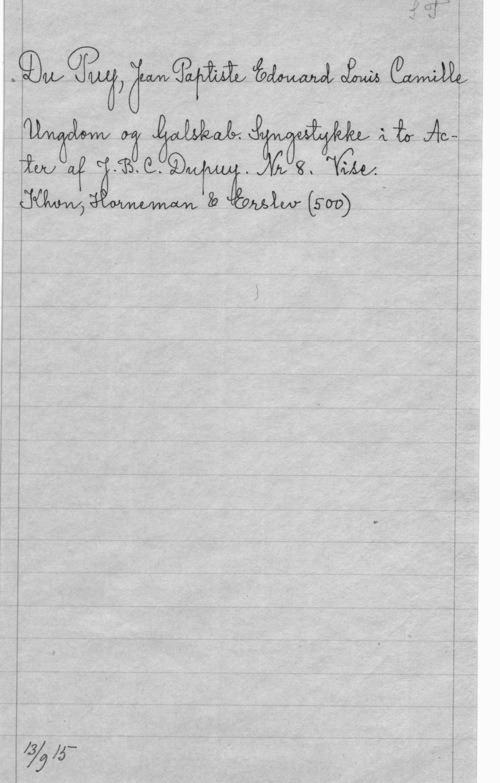 Du Puy, Jean Baptiste Edouard Louis Camille
Ungdom og Galskab. Syngestykke i to Ac-
ter af J. B. C. Dupuy. Nr 8. Vise.
Khvn, Horneman & Erslev (500)
13/9 15